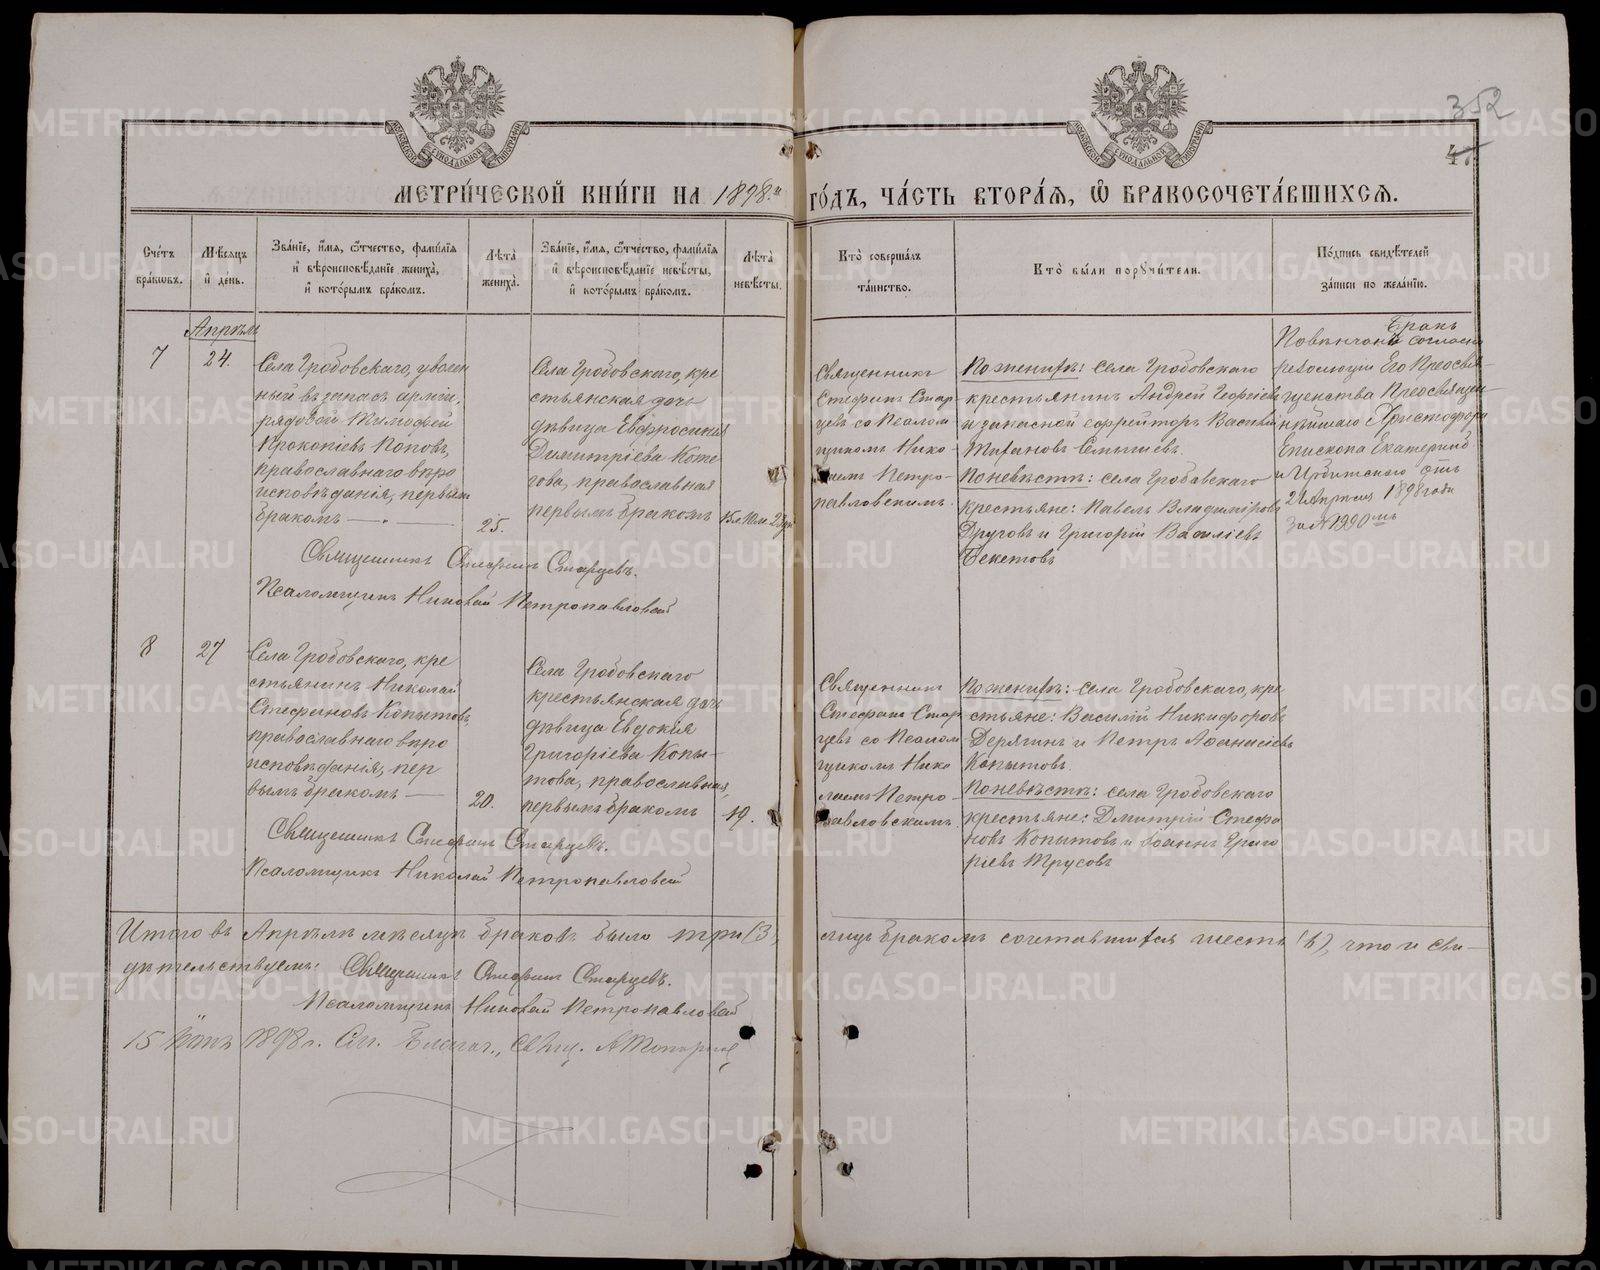 352
МЕТРИ́ЧЕСКОЙ КНИ́ГИ НА 1898.й ГО́ДЪ, ЧА́СТЬ ВТОРА́Я, Ѡ БРАКОСОЧЕТА́ВШИХСЯ.
Сче́тъ бра́ковъ.
Мѣ́сяцъ и҆ де́нь.
Зва́нїе, и҆́мя, ѻ҆́тчество, фамѝлїя и҆ вѣроисповѣ́данїе жениха̀, и҆ кото́рымъ бра́комъ.
Лѣ́та жениха̀.
Зва́нїе, и҆́мя, ѻ҆́тчество, фамѝлїя и҆ вѣроисповѣ́данїе невѣ́сты, и҆ кото́рымъ бра́комъ.
Лѣ́та невѣ́сты.
Кто̀ соверша́лъ та́инство.
Кто̀ бы́ли порꙋчи́тели.
По́дпись свидѣ́телей за́писи по жела́нїю.
Апрѣль
7
24.
Села Гробовскаго, уволен
ный въ запасъ арміи,
рядовой Тимофей
Прокопіевъ Поповъ,
православнаго вѣро
исповѣданія, первымъ
бракомъ —
25.
Села Гробовскаго, кре
стьянская дочь
дѣвица Евфросинія
Димитріева Коже
гова, православная
первымъ бракомъ
Священникъ
Стефанъ Стар
цевъ со Псалом
щикомъ Нико
лаемъ Петро-
павловскимъ.
По женихѣ: села Гробовскаго
крестьянинъ Андрей Георгіевъ
и запасной ефрейторъ Василій
По невѣстѣ: села Гробовскаго
крестьяне: Павелъ Владиміровъ
Друговъ и Григорій Василіевъ
Бекетовъ
Бракъ
Повѣнчанъ согласно
резолюціи Его Преосвя-
щенства Преосвящен-
нѣйшаго Христофора
Епископа Екатеринб
и Ирбитскаго отъ
21 Апрѣля 1898 года
за №1390мъ
Священникъ Стефанъ Старцевъ.
Псаломщикъ Николай Петропавловскій
8
27
Села Гробовскаго, кре
стьянинъ Николай
Стефановъ Копытовъ,
православнаго вѣро
исповѣданія, пер
вымъ бракомъ —
20.
Села Гробовскаго
крестьянская дочь
дѣвица Евдокія
Григоріева Копы-
това, православная,
первымъ бракомъ
19.
Священникъ
Стефанъ Стар
цевъ со Псалом
щикомъ Нико
лаемъ Петро-
павловскимъ.
По женихѣ: села Гробовскаго, кре
стьяне: Василій Никифоровъ
Дерягинъ и Петръ Аѳанасіевъ
Копытовъ.
По невѣстѣ: села Гробовскаго
крестьяне: Дмитрій Стефа
новъ Копытовъ и Іоаннъ Григо
ріевъ Трусовъ
Священникъ Стефанъ Старцевъ.
Псаломщикъ Николай Петропавловскій
Итого въ Апрѣлѣ мѣсяцѣ браковъ было три (3), лицъ бракомъ сочетавшихся шесть (6), что и сви-
дѣтельствуемъ: Священникъ Стефанъ Старцевъ.
Псаломщикъ Николай Петропавловскій
15 1898 г. Благоч., Свящ.